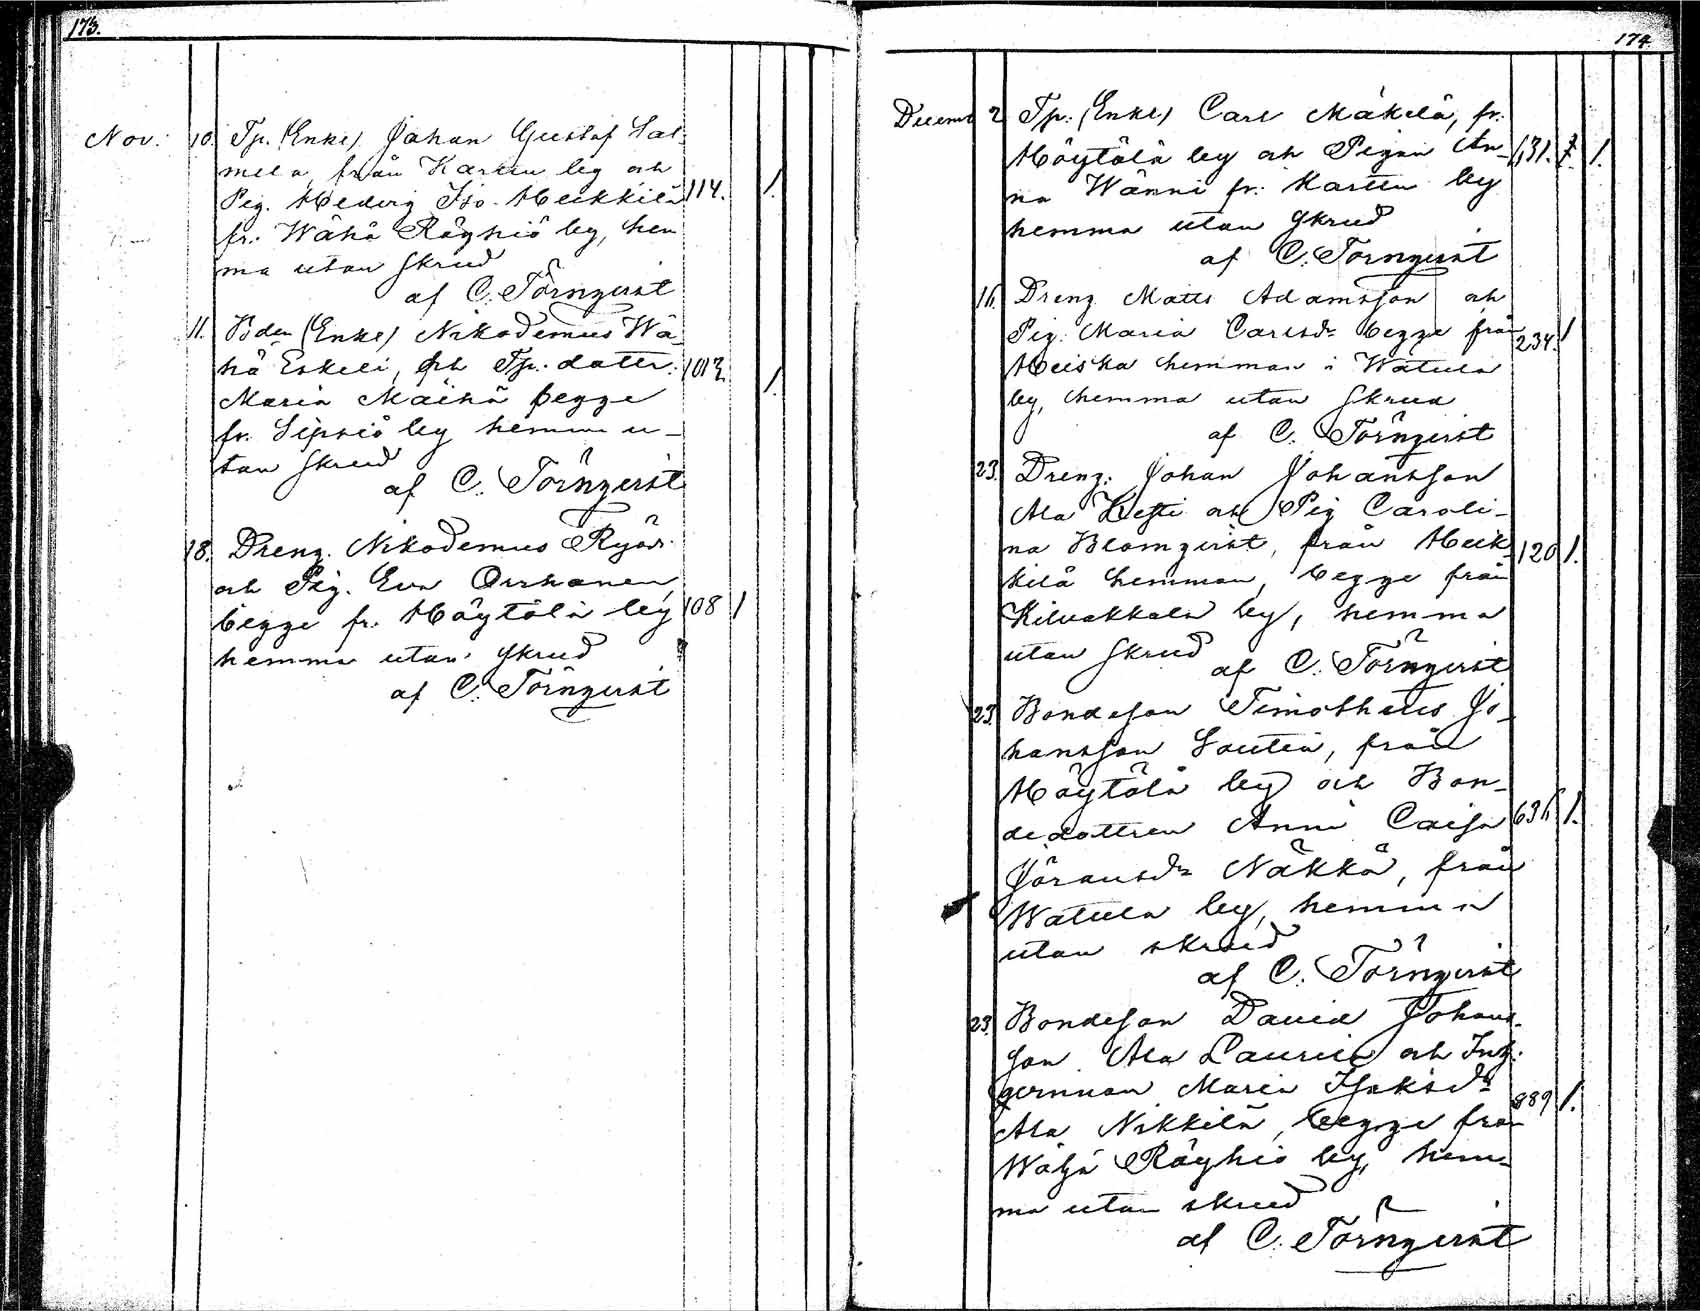 173.
Nov: 10. Tp. (Enkl) Johan Gustaf Sal-
mela, från Karttu by och
Pig. Hedvig Iso-Heikkilä 114. 1.
fr. Wähä Röyhiö by, hem
ma utan skrud
af C. Törnqvist
11. Bden (Enkl) Nikodemus Wä-
hä Eskeli, och Tp. dottr.
Maria Maihä begge 1.
fr. Sipsiö by hemma u-
tan skrud
af C. Törnqvist
18. Dreng. Nikodemus
och Pig. Eva Orrhanen,
begge fr. Höytölä by 108 1
hemma utan skrud
af C. Törnqvist
174.
Decemb 2 Tp. (Enkl) Carl Mäkelä, fr.
Höytölä by och Pigan An- 131. 1.
na Wänni fr. Karttu by
hemma utan skrud
af C. Törnqvist
16. Dreng Matts Adamsson och
Pig. Maria Carlsdr begge från 234. 1
Heiska hemman i Watula
by, hemma utan skrud
af C. Törnqvist
23. Dreng. Johan Johansson
Ala och Pig Caroli-
na Blomqvist, från Heik- 120 1.
kilä hemman, begge från
Kilvakkala by, hemma
utan skrud
af C. Törnqvist
23. Bondeson Timotheus Jo-
hansson Soutia, från
Höytölä by och Bon-
dedottren Anna Caisa 636 1.
Jöransdr Näkkä, från
Watula by, hemma
utan skrud
af C. Törnqvist
23. Bondeson David Johans-
son Ala Laurila och Inh.
gernnan Maria Isaksdr
Ala Nikkilä, begge från 889 1.
Wähä Röyhiö by, hem-
ma utan skrud
af C. Törnqvist